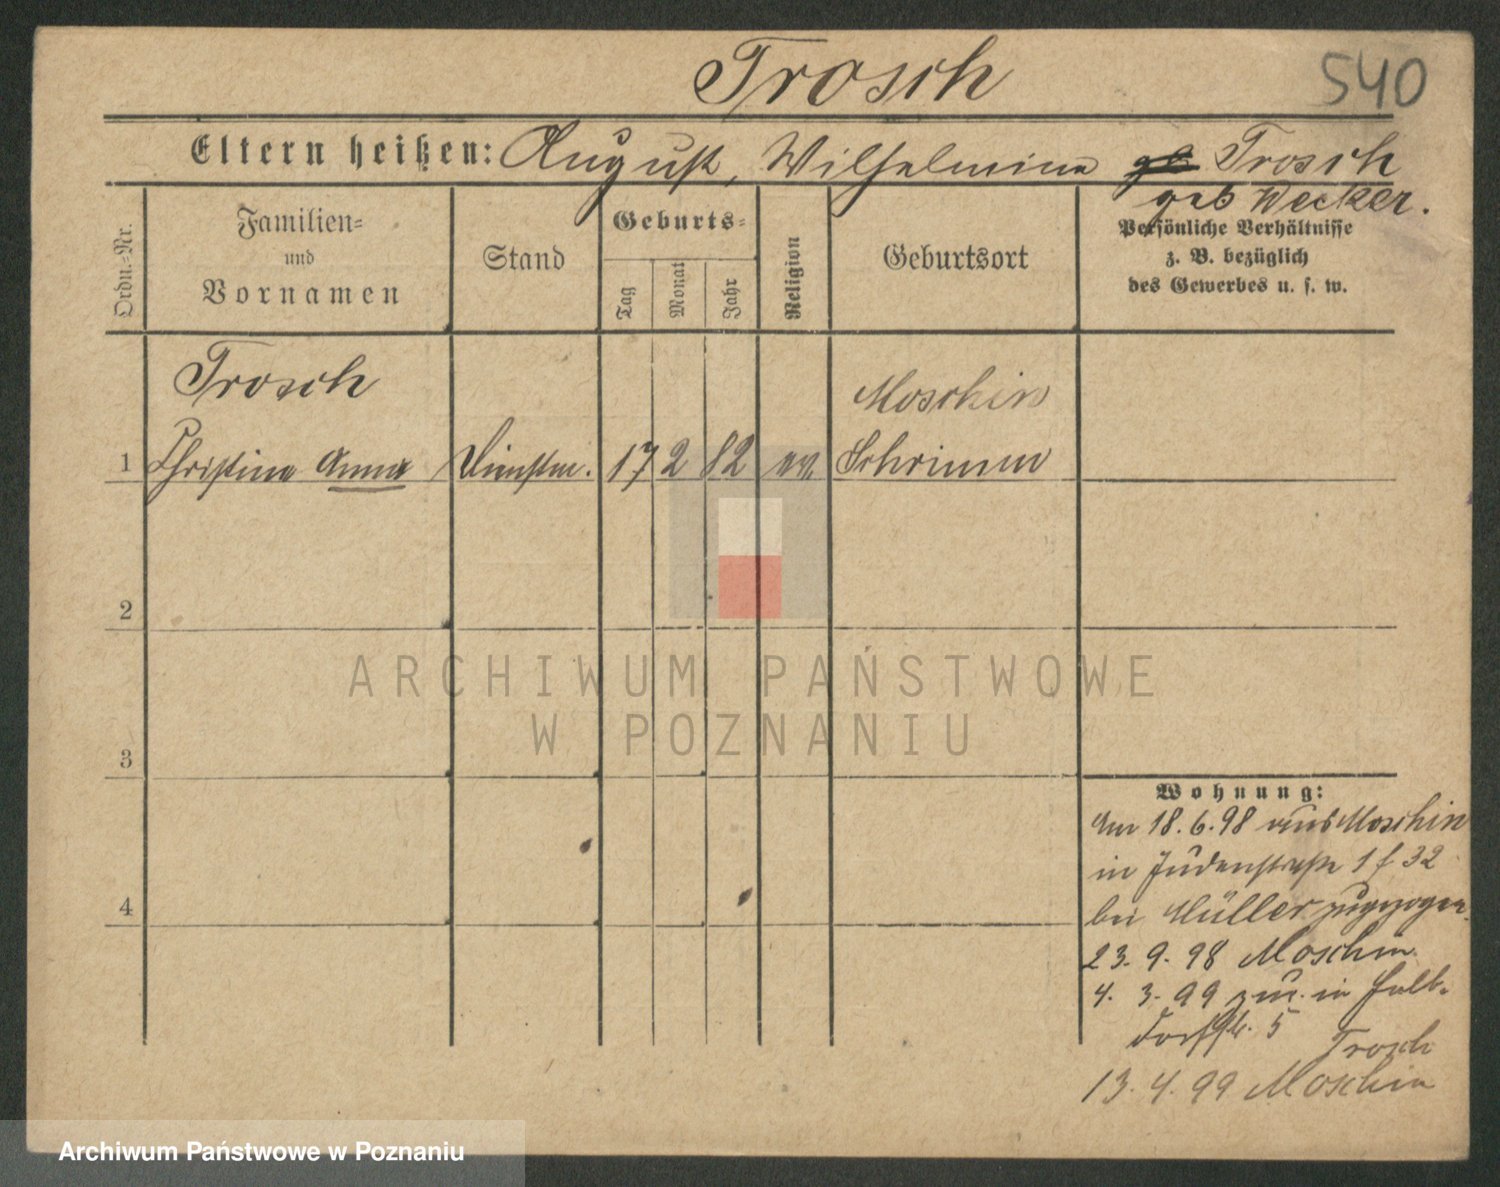 Trosch
540
Eltern heißen: August, Wilhelmine geb Trosch
geb Wecker.
Ordn.-Nr.
Familien-
und
Vornamen
Stand
Geburts-
Tag
Monat
Jahr
Religion
Geburtsort
Persönliche Verhältnisse
z. B. bezüglich
des Gewerbes u. s. w.
Trosch
Moschin
1 Christine Anna Dienstm. 17 2 82 ev. Schrimm
2
3
4
ARCHIWUM PAŃSTWOWE
W POZNANIU
Wohnung:
Am 18.6.98 aus Moschin
in Judenstraße 1 f 32
bei Müller zugezogen.
23. 9. 98 Moschin
4. 3. 99 zur. in Halb-
dorfstr. 5 Trosch
13. 4. 99 Moschin
Archiwum Państwowe w Poznaniu